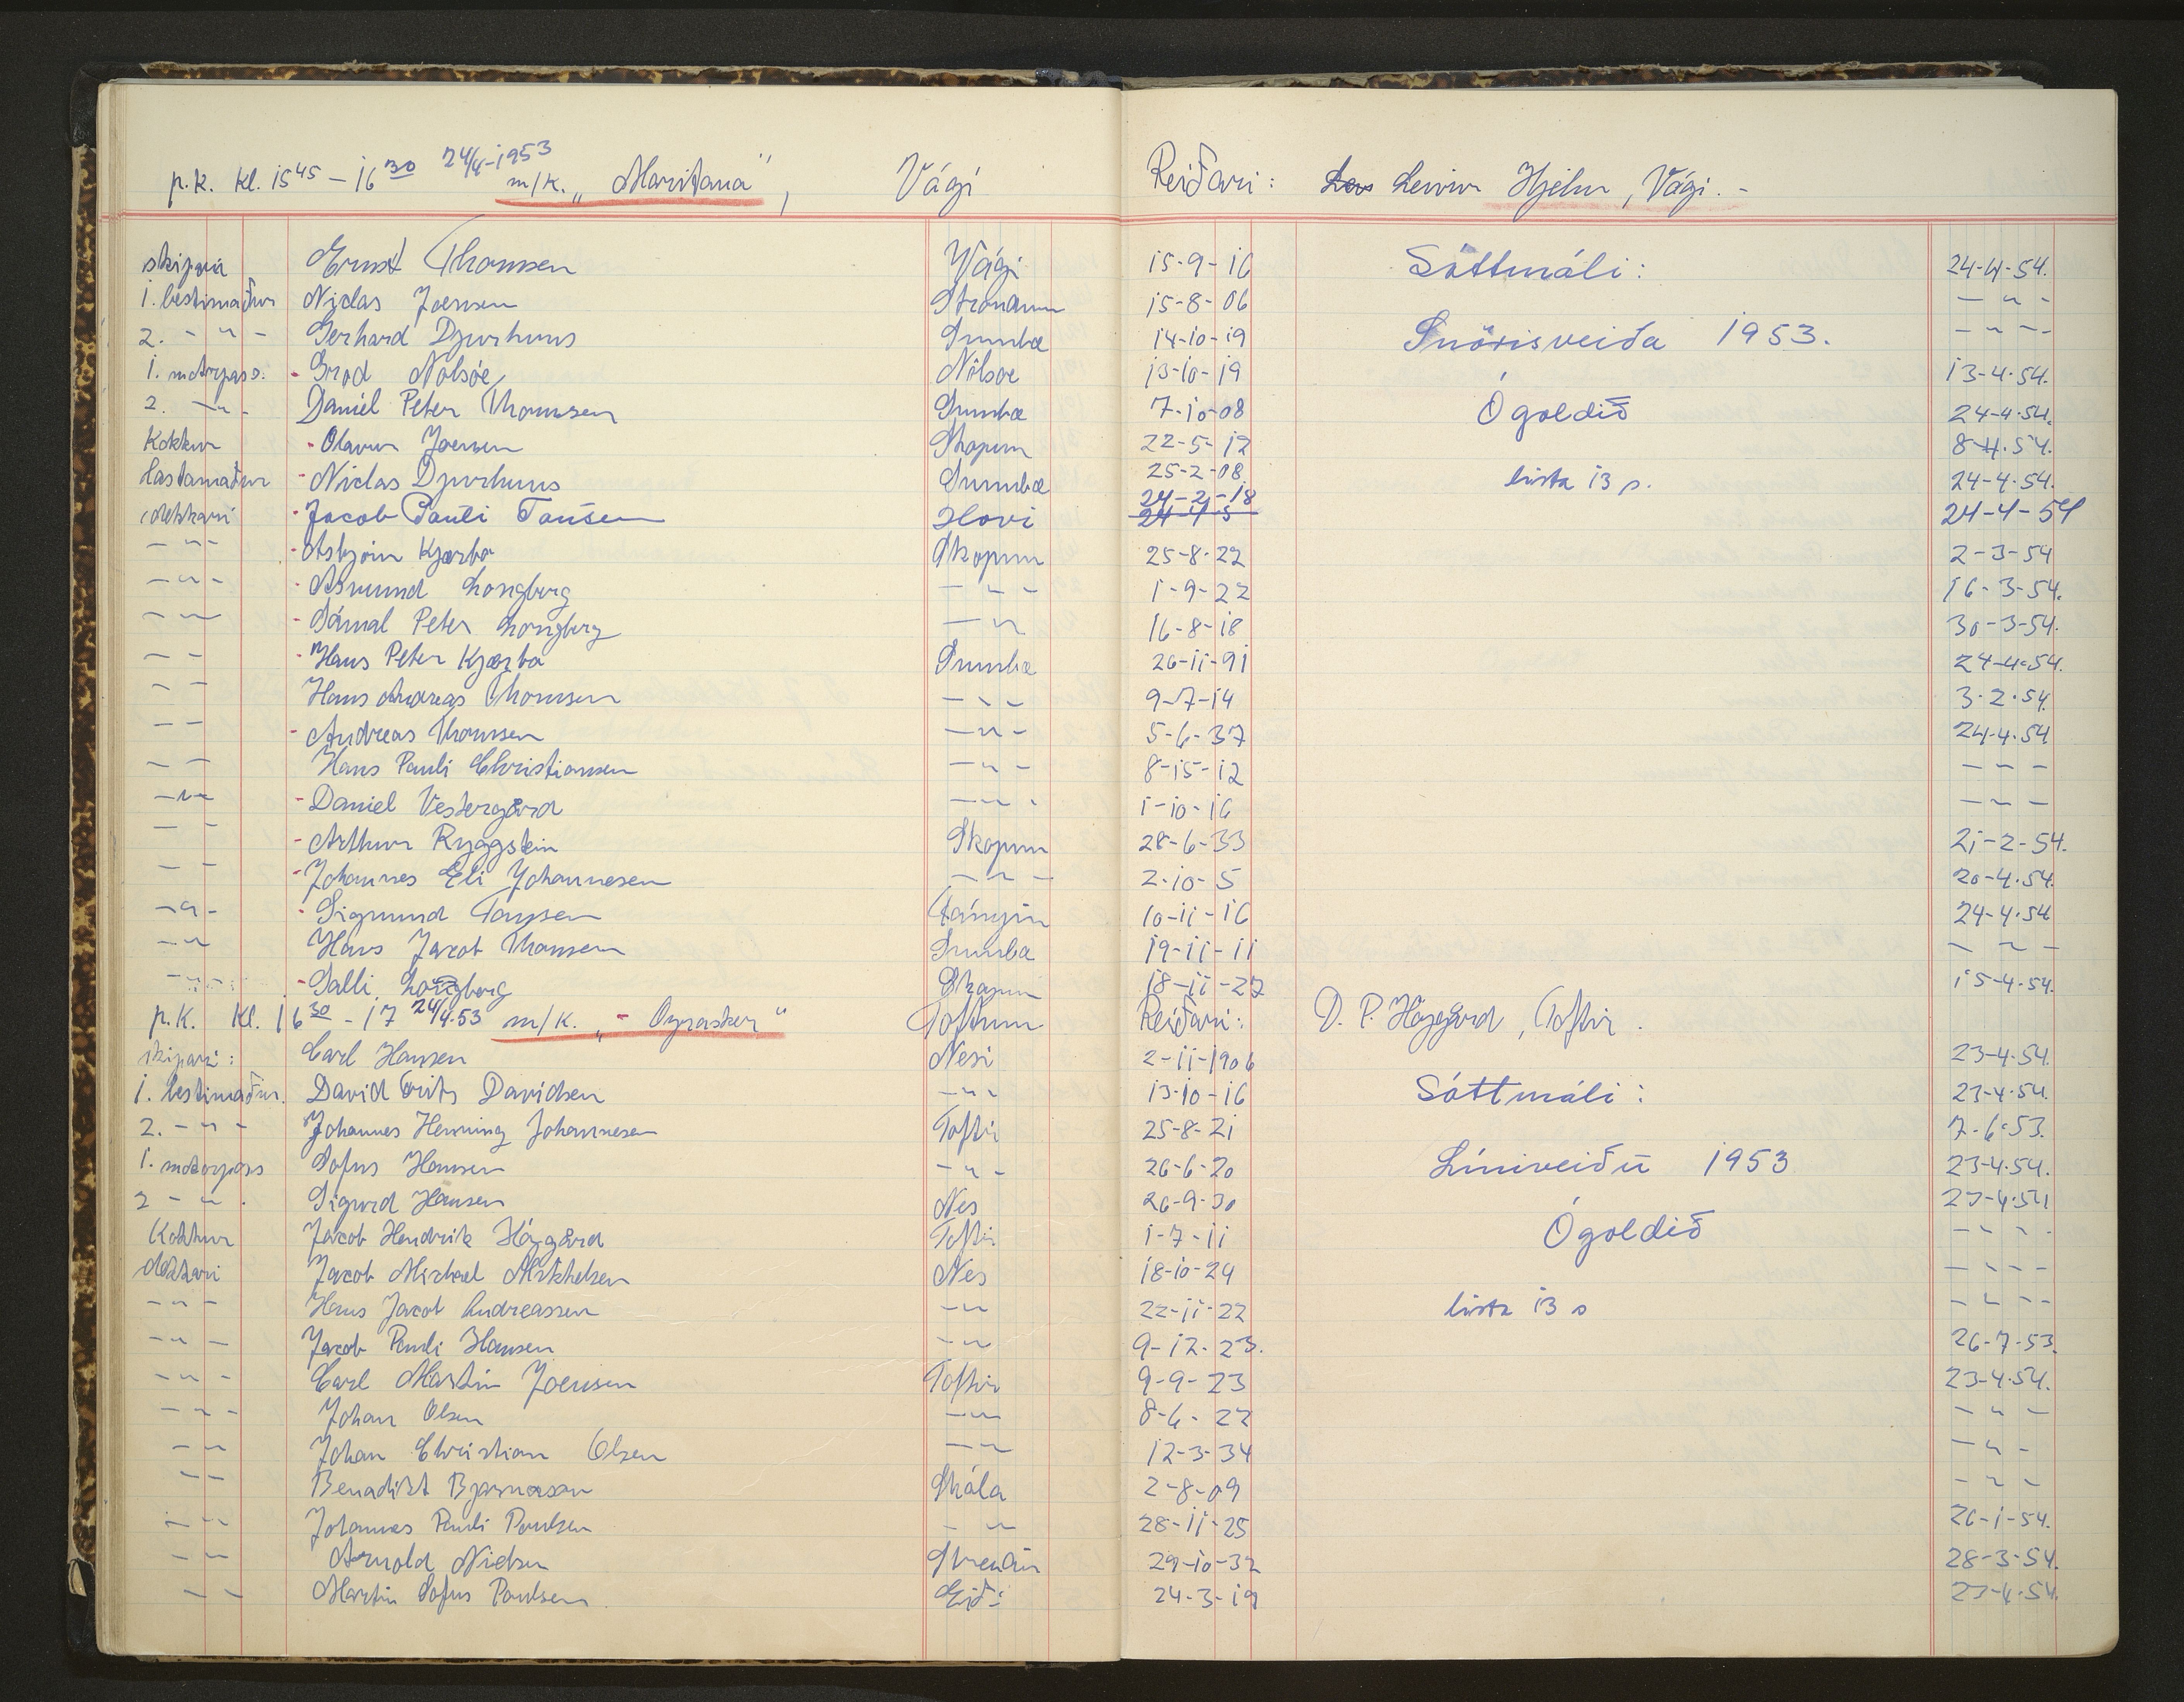 p.k. kl. 15 45 – 16 30 24/4-1953 m/k. „Maritana", Vági Reiðari: Leivur Hjelm, Vági. -
skipari Ernst Thomsen Vági 15-9-16 Sáttmáli: 24-4-54.
1. bestimaður Niclas Joensen 15-8-06 — " -
2. - " - Gerhard Djurhuus Sumba 14-10-19 Snørisveiða 1953. - " --
1. motorpass. - Nólsoe Nólsoe 13-10-19 13-4-54.
2. -"- Daniel Peter Thomsen Sumba 7-10-08 Ógoldið 24-4-54.
Kokkur - Olavur Joensen Skopun 22-5-12 8-4-54.
Lastamaður - Niclas Djurhuus Sumba 25-2-08. lista 13 s. 24-4-54.
dekkari - Jacob Pauli Hovi 24-2-18 24-4-54
- " - - Asbjörn Kjærbo Skopun 25-8-22 2-3-54
- " - - Asmund Longberg - " - 1-9-22 16-3-54.
- " - - Sámal Peter Longberg - " 16-8-18 30-3-54.
- - - Hans Peter Kjærbo Sumba 26-11-91 24-4-54.
- - Hans Andreas Thomsen - " - 9-7-14 3-2-54.
- - - Andreas Thomsen - " - 5-6-37 24-4-54
- - Hans Pauli Christiansen - " - 8-15-12 - - -
- " - - Daniel Vestergård - " - 1-10-16 - " -
- - - Arthur Ryggstein Skopun 28-6-33 21-2-54.
- - - Johannes Eli Johannesen - " - 2-10-5 20-4-54.
- " - - Sigmund 10-11-16 24-4-54
- " Hans Jacob Thomsen Sumba 19-11-11 - " -
- " - - Longberg Skopun 18-11-27 15-4-54.
p.k. kl. 16 30 - 17 24/4-53 m/k. „- " Toftum Reiðari: D. P. Højgård, Toftir.
skipari: Carl Hansen Nesi 2-11-1906 23-4-54.
1. bestimaður. David Frits Davidsen - " - 13-10-16 Sáttmáli: 23-4-54.
2. - " - Johannes Henning Johannesen Toftir 25-8-21 7-6-53.
1. motorpass Sofus Hansen - " - 26-6-20 Líniveiðu 1953 23-4-54.
2 - " . Sigurd Hansen Nes 26-9-30 23-4-54
Kokkur Jacob Hendrik Højgård Toftir 1-7-11 Ógoldið - " -
dekkari Jacob Michael Mikkelsen Nes 18-10-24 - " -
- " - Hans Jacob Andreassen - " 22-11-22 lista 13 s - " -
- " - Jacob Pauli Hansen - " 9-12-23. 26-7-53.
- " - Carl Martin Joensen Toftir 9-9-23 23-4-54.
- " - Johan Olsen - " 8-6-22 - " -
- " Johan Christian Olsen - " 12-3-34 - " -
- - Benadikt Bjarnason Skála 2-8-09 - " -
- " Johannes Pauli Poulsen - " 28-11-25 26-1-54.
- " Arnold Nielsen 29-10-32 28-3-54.
- - Martin Sofus Poulsen Eiði 24-3-19 23-4-54.